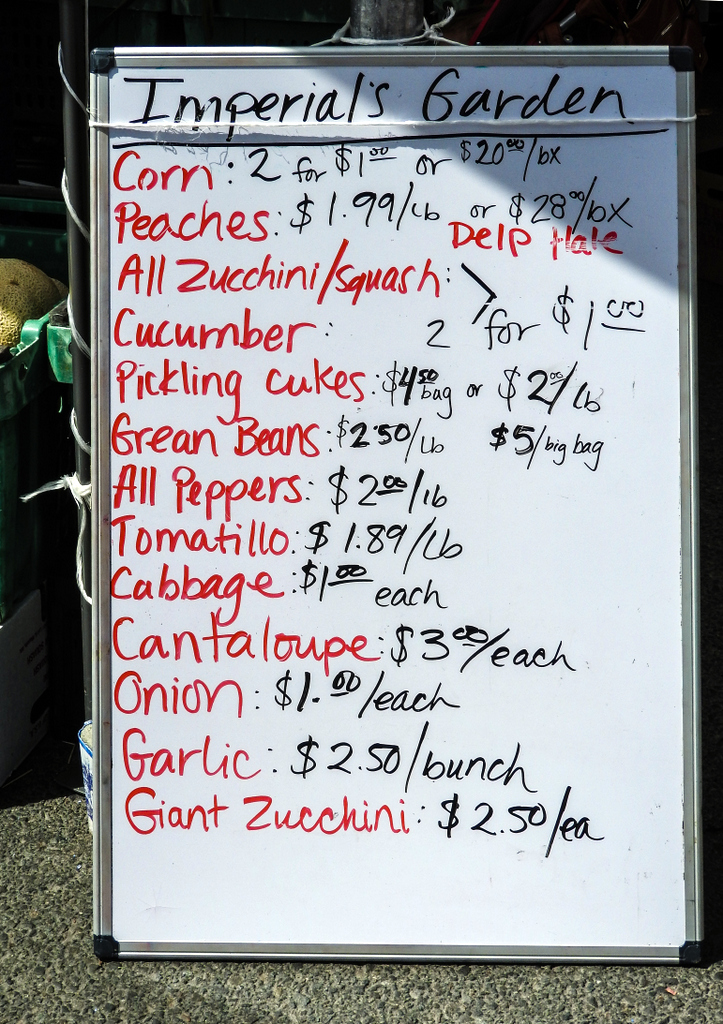 Imperial's Garden
Corn: 2 for $1.00 or $20.00/bx
Peaches: $1.99/lb or $28.00/bx
Delp Hale
All Zucchini/squash:
Cucumber: 2 for $1.00
Pickling cukes: $4.50 bag or $2.00/lb
Grean Beans: $2.50/lb $5/big bag
All Peppers: $2.00/lb
Tomatillo: $1.89/lb
Cabbage: $1.00 each
Cantaloupe: $3.00/each
Onion: $1.00/each
Garlic: $2.50/bunch
Giant Zucchini: $2.50/ea